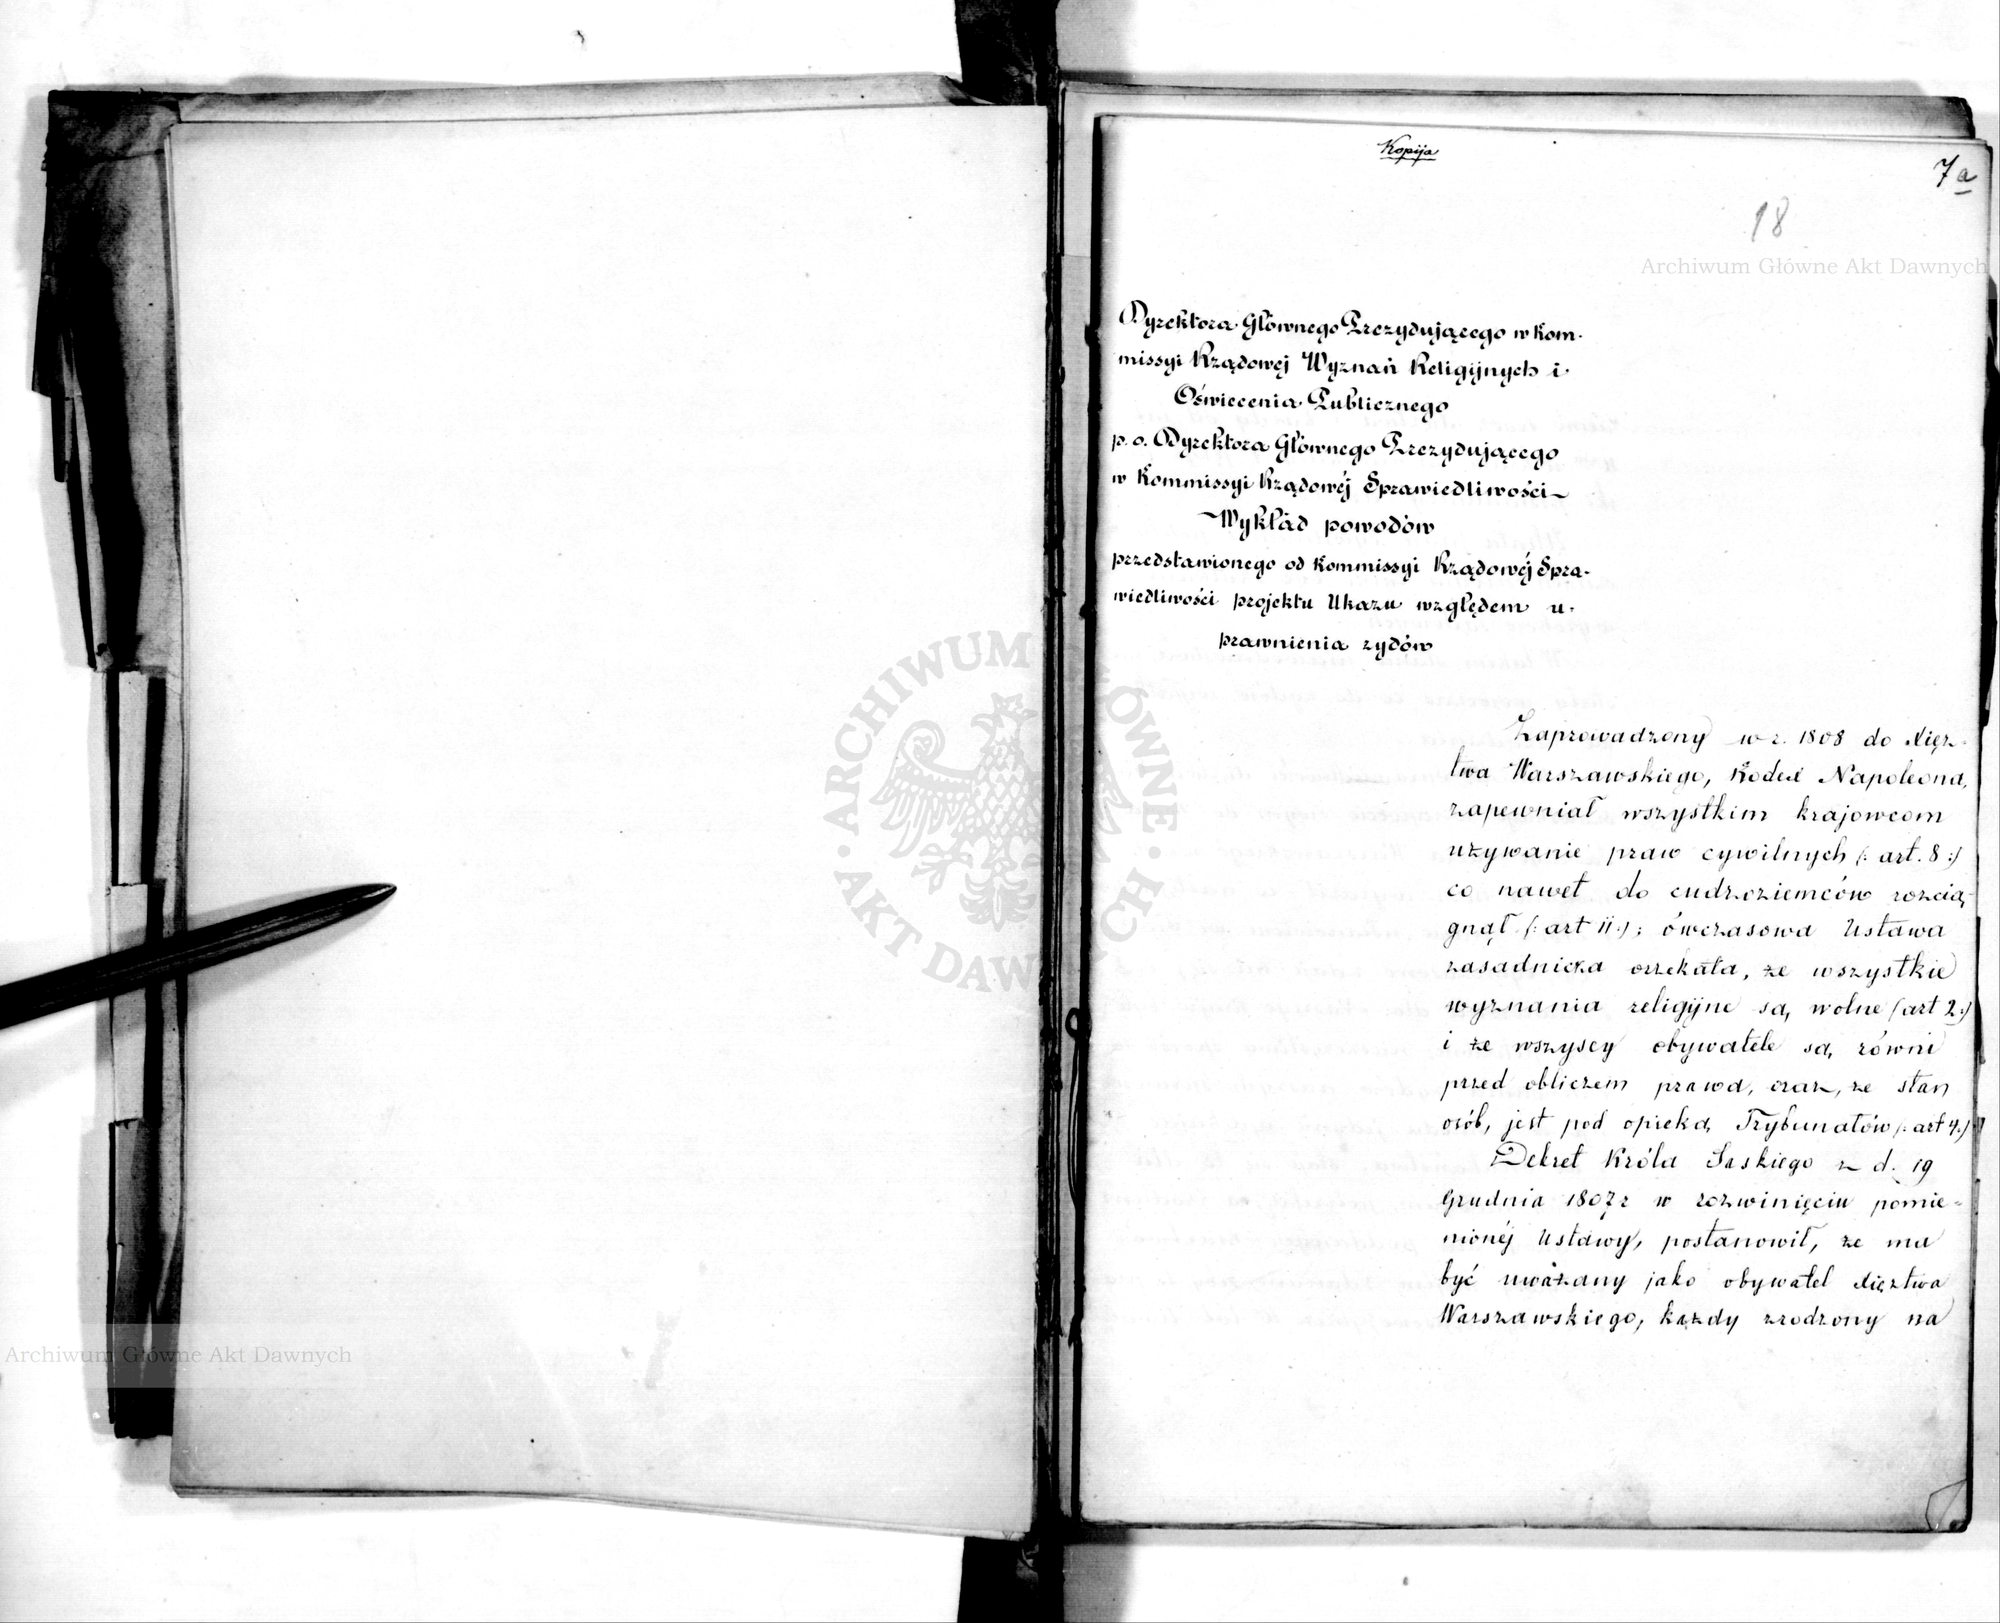 Kopija
7a
18
Archiwum Główne Akt Dawnych
Dyrektora Głównego Prezydującego w Kom-
missyi Rządowéj Wyznań Religijnych i
Oświecenia Publicznego
p. o. Dyrektora Głównego Prezydującego
w Kommissyi Rządowéj Sprawiedliwości
Wykład powodów
przedstawionego od Kommissyi Rządowéj Spra-
wiedliwości projektu Ukazu względem u-
prawnienia zydów
Zaprowadzony w r. 1808 do Xięz-
twa Warszawskiego, Kodex Napoleona,
zapewniał wszystkim krajowcom
używanie praw cywilnych (: art. 8 :)
co nawet do cudzoziemców rozcią-
gnął (: art 11 :); ówczasowa Ustawa
zasadnicza orzekała, że wszystkie
wyznania religijne są wolne (art 2:)
i że wszyscy obywatele są równi
przed obliczem prawa, oraz, że stan
osób, jest pod opieką Trybunałów (: art 4:)
Dekret Króla Saskiego z d. 19
Grudnia 1807 r w rozwinięciu pomie-
nionéj Ustawy, postanowił, że ma
być uważany jako obywatel Xięztwa
Warszawskiego, każdy zrodzony na
ARCHIWUM GŁÓWNE AKT DAWNYCH
Archiwum Główne Akt Dawnych